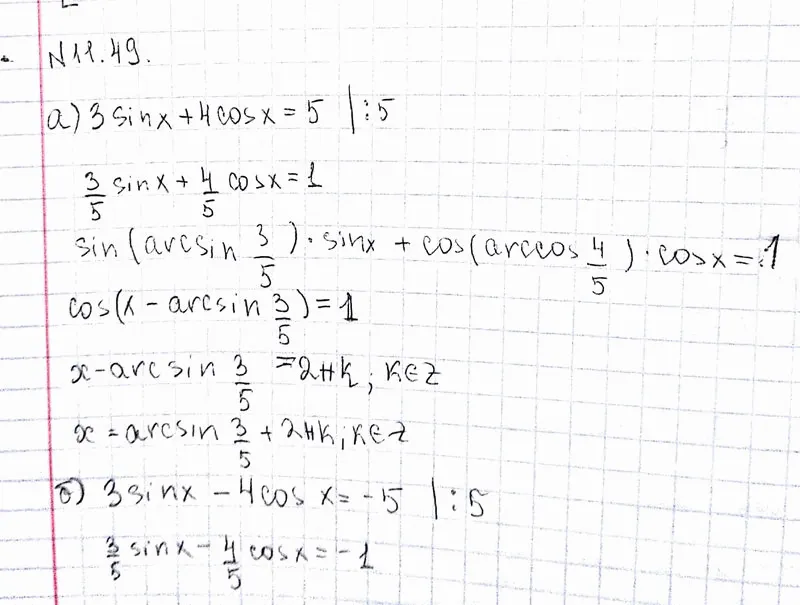 N11.49.
а) 3 sin x + 4 cos x = 5 | : 5
3/5 sin x + 4/5 cos x = 1
sin(arcsin 3/5) · sin x + cos(arccos 4/5) · cos x = 1
cos(x - arcsin 3/5) = 1
x - arcsin 3/5 = 2πk, k∈Z
x = arcsin 3/5 + 2πk, k∈Z
б) 3 sin x - 4 cos x = -5 | : 5
3/5 sin x - 4/5 cos x = -1